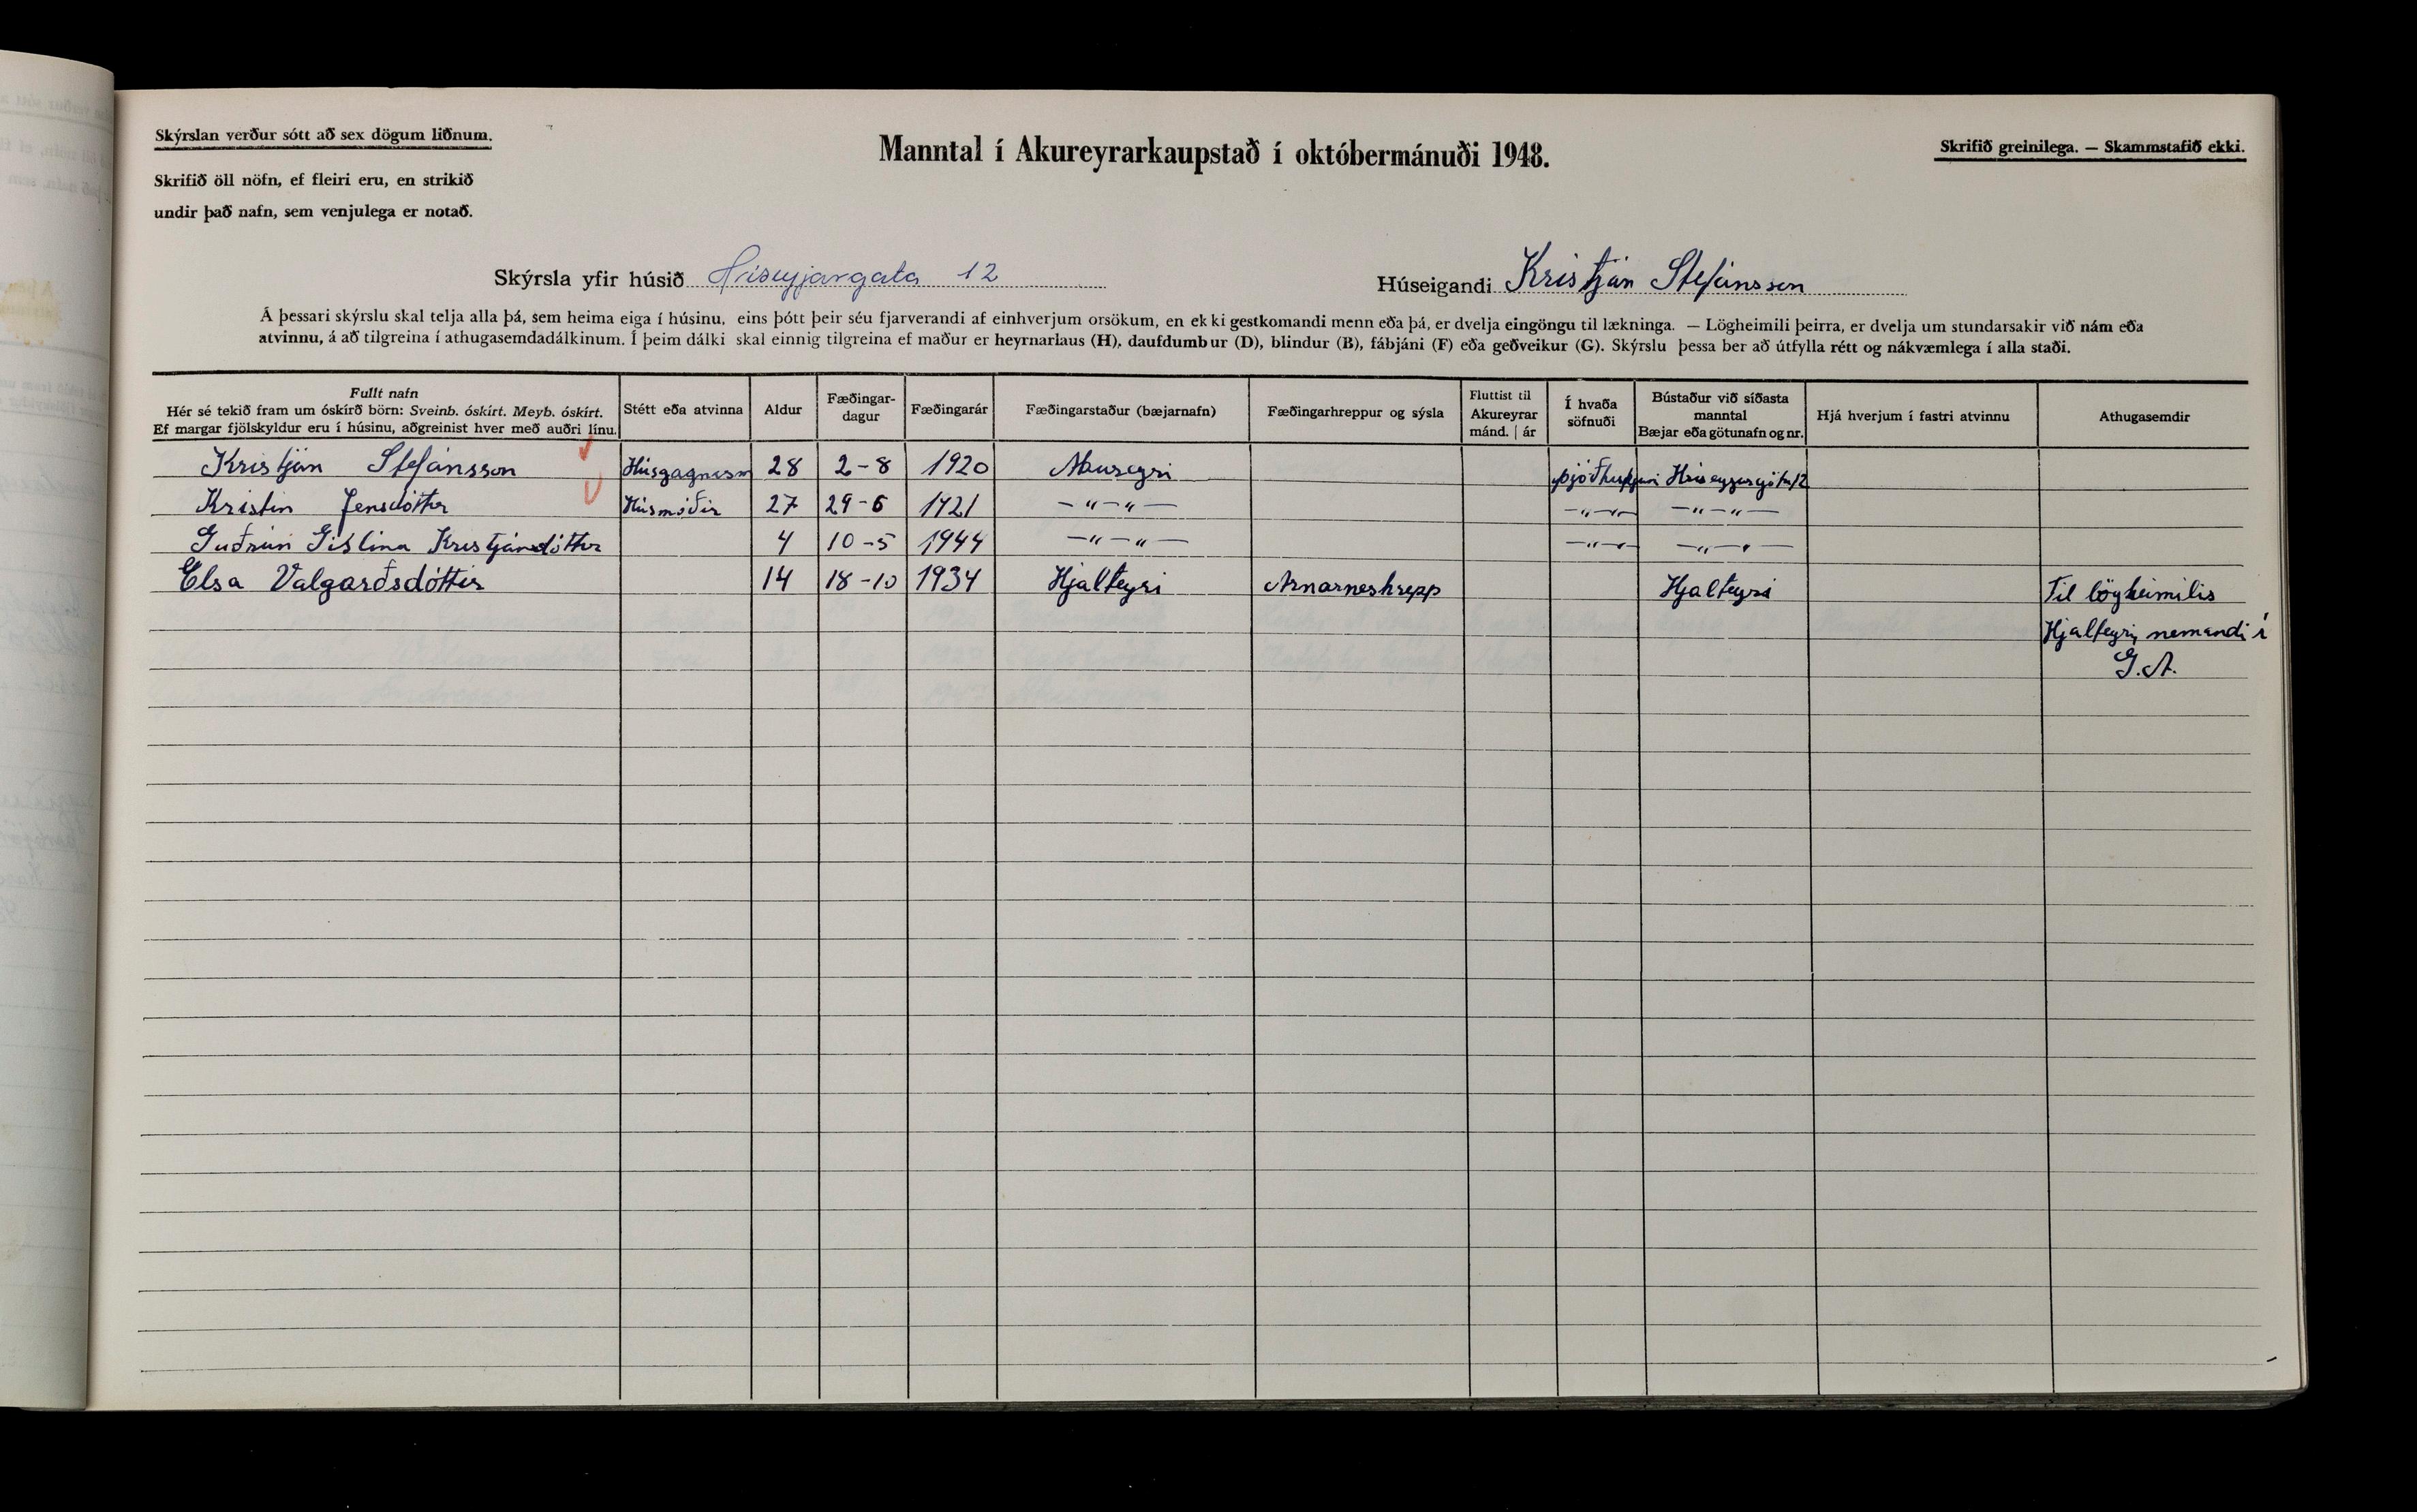 Skýrslan verður sótt að sex dögum liðnum.
Skrifið öll nöfn, ef fleiri eru, en strikið
undir það nafn, sem venjulega er notað.
Manntal í Akureyrarkaupstað í októbermánuði 1948.
Skrifið greinilega. — Skammstafið ekki.
Skýrsla yfir húsið Hríseyjargata 12
Húseigandi Kristján Stefánsson
Á þessari skýrslu skal telja alla þá, sem heima eiga í húsinu, eins þótt þeir séu fjarverandi af einhverjum orsökum, en ekki gestkomandi menn eða þá, er dvelja eingöngu til lækninga. — Lögheimili þeirra, er dvelja um stundarsakir við nám eða
atvinnu, á að tilgreina í athugasemdadálkinum. Í þeim dálki skal einnig tilgreina ef maður er heyrnarlaus (H), daufdumbur (D), blindur (B), fábjáni (F) eða geðveikur (G). Skýrslu þessa ber að útfylla rétt og nákvæmlega í alla staði.
Fullt nafn
Hér sé tekið fram um óskírð börn: Sveinb. óskírt. Meyb. óskírt.
Ef margar fjölskyldur eru í húsinu, aðgreinist hver með auðri línu.
Stétt eða atvinna
Aldur
Fæðingar-
dagur
Fæðingarár
Fæðingarstaður (bæjarnafn)
Fæðingarhreppur og sýsla
Fluttist til
Akureyrar
mánd. | ár
Í hvaða
söfnuði
Bústaður við síðasta
manntal
Bæjar eða götunafn og nr.
Hjá hverjum í fastri atvinnu
Athugasemdir
Kristján Stefánsson Húsgagnasm 28 2-8 1920 Akureyri Hríseyjargötu 12
Kristín Jensdóttir Húsmóðir 27 29-6 1921 -"-"- -"-"- -"-"-
Guðrún Gíslína Kristjánsdóttir 4 10-5 1944 -"-"- -"-"- -"-"-
Elsa Valgarðsdóttir 14 18-10 1934 Hjalteyri Arnarneshrepp Hjalteyri Til lögheimilis
Hjalteyri, nemandi í
G.A.